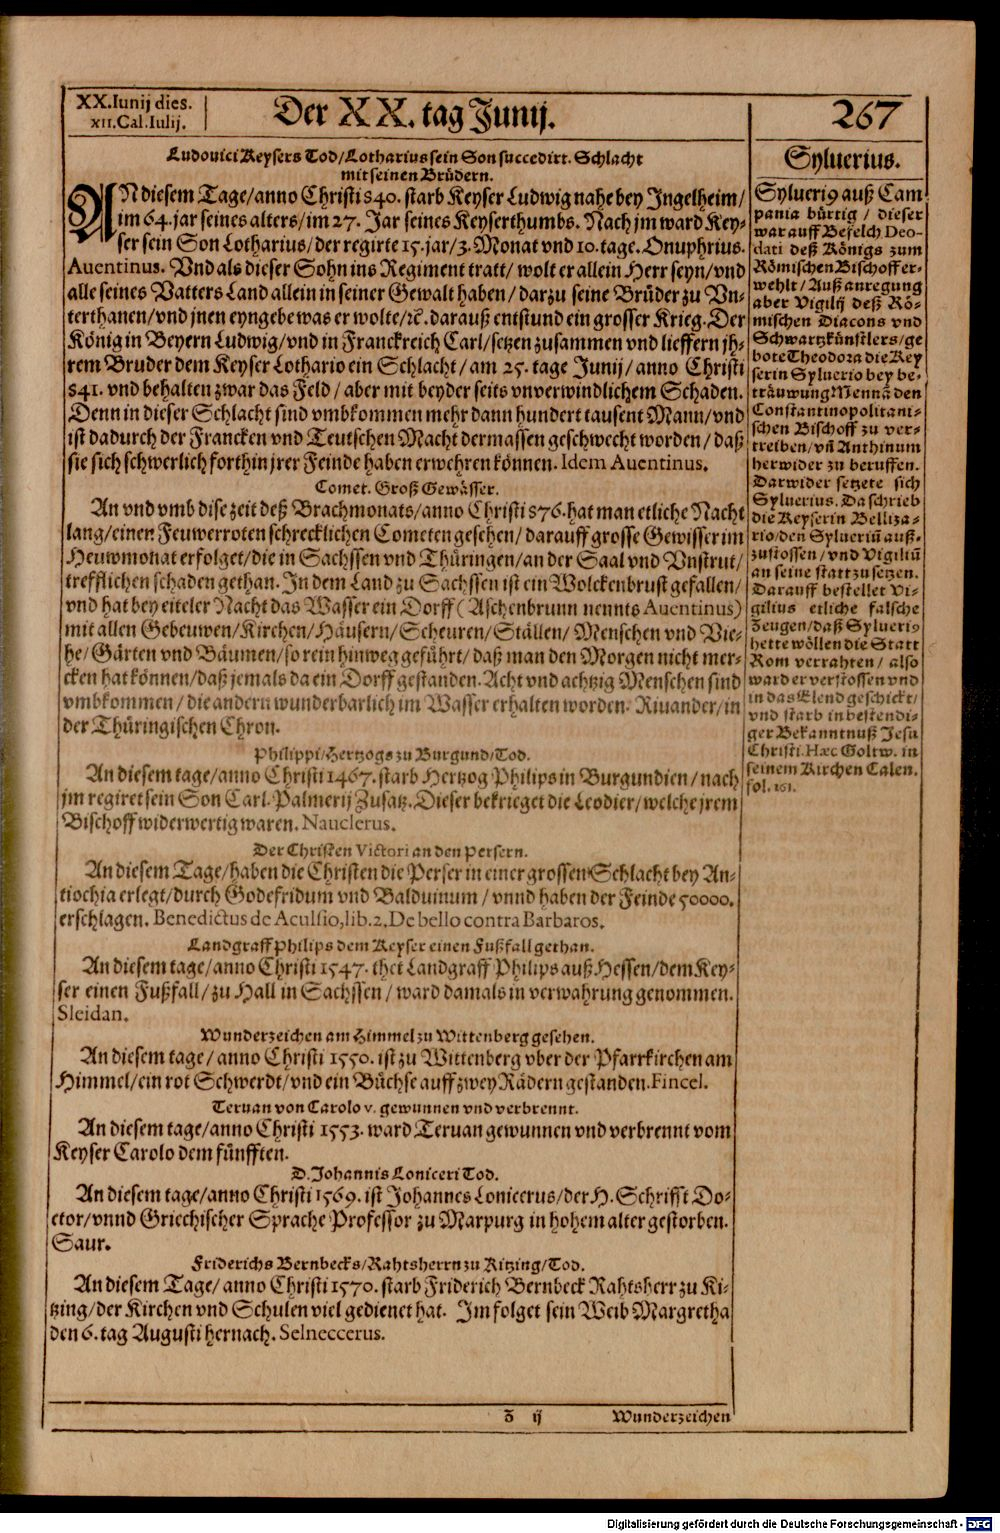 XX. Iunij dies.
XII. Cal. Iulij.
Der XX. tag Junij.
267
Ludouici Keysers Tod/Lotharius sein Son succedirt. Schlacht
mit seinen Brüdern.
AN diesem Tage/anno Christi 840. starb Keyser Ludwig nahe bey Ingelheim/
im 64. jar seines alters/im 27. Jar seines Keyserthumbs. Nach jm ward Key-
ser sein Son Lotharius/der regirte 15. jar/3. Monat vnd 10. tage. Onuphrius.
Auentinus. Vnd als dieser Sohn ins Regiment tratt/ wolt er allein Herr seyn/vnd
alle seines Vatters Land allein in seiner Gewalt haben/ darzu seine Brüder zu Vn-
terthanen/vnd jnen eyngebe was er wolte/ꝛc. darauß entstund ein grosser Krieg. Der
König in Beyern Ludwig/vnd in Franckreich Carl/setzen zusammen vnd lieffern jh-
rem Bruder dem Keyser Lothario ein Schlacht/ am 25. tage Junij/ anno Christi
841. vnd behalten zwar das Feld / aber mit beyder seits vnverwindlichem Schaden.
Denn in dieser Schlacht sind vmbkommen mehr dann hundert tausent Mann/vnd
ist dadurch der Francken vnd Teutschen Macht dermassen geschwecht worden/ daß
sie sich schwerlich forthin jrer Feinde haben erwehren können. Idem Auentinus.
Comet. Groß Gewässer.
An vnd vmb dise zeit deß Brachmonats/anno Christi 876. hat man etliche Nacht
lang/einen Feuwerroten schrecklichen Cometen gesehen/ darauff grosse Gewisser im
Heuwmonat erfolget/die in Sachssen vnd Thüringen/an der Saal vnd Vnstrut/
trefflichen schaden gethan. In dem Land zu Sachssen ist ein Wolckenbrust gefallen/
vnd hat bey eiteler Nacht das Wasser ein Dorff (Aschenbrunn nennts Auentinus)
mit allen Gebeuwen/Kirchen/Häusern/Scheuren/Ställen/ Menschen vnd Vie-
he/ Gärten vnd Bäumen/so rein hinweg geführt/ daß man den Morgen nicht mer-
cken hat können/daß jemals da ein Dorff gestanden. Acht vnd achtzig Menschen sind
vmbkommen / die andern wunderbarlich im Wasser erhalten worden. Riuander/in
der Thüringischen Chron.
Philippi/Hertzogs zu Burgund/Tod.
An diesem tage/anno Christi 1467. starb Hertzog Philips in Burgundien / nach
jm regiret sein Son Carl. Palmerij Zusatz. Dieser bekrieget die Leodier/welche jrem
Bischoff widerwertig waren. Nauclerus.
Der Christen Victori an den Persern.
An diesem Tage/haben die Christen die Perser in einer grossen Schlacht bey An-
tiochia erlegt/durch Godefridum vnd Balduinum / vnnd haben der Feinde 50000.
erschlagen. Benedictus de Aculsio, lib. 2. De bello contra Barbaros.
Landgraff Philips dem Keyser einen Fußfall gethan.
An diesem tage/anno Christi 1547. thet Landgraff Philips auß Hessen/dem Key-
ser einen Fußfall/ zu Hall in Sachssen / ward damals in verwahrung genommen.
Sleidan.
Wunderzeichen am Himmel zu Wittenberg gesehen.
An diesem tage/ anno Christi 1550. ist zu Wittenberg vber der Pfarrkirchen am
Himmel/ein rot Schwerdt/vnd ein Büchse auff zwey Rädern gestanden. Fincel.
Teruan von Carolo v. gewunnen vnd verbrennt.
An diesem tage/anno Christi 1553. ward Teruan gewunnen vnd verbrennt vom
Keyser Carolo dem fünfften.
D. Johannis Loniceri Tod.
An diesem tage/anno Christi 1569. ist Johannes Lonicerus/der H. Schrifft Do-
ctor/vnnd Griechischer Sprache Professor zu Marpurg in hohem alter gestorben.
Saur.
Friderichs Bernbecks/Rahtsherrn zu Kitzing/Tod.
An diesem Tage/ anno Christi 1570. starb Friderich Bernbeck Rahtsherr zu Ki-
tzing/der Kirchen vnd Schulen viel gedienet hat. Im folget sein Weib Margretha
den 6. tag Augusti hernach. Selneccerus.
Syluerius.
Sylueriꝰ auß Cam
pania bürtig / dieser
war auff Befelch Deo-
dati deß Königs zum
Römischen Bischoff er-
wehlt / Auß anregung
aber Vigilij deß Rö-
mischen Diacons vnd
Schwartzkünstlers/ge
bote Theodora die Key
serin Syluerio bey be-
träuwung Mennā den
Constantinopolitani-
schen Bischoff zu ver-
treiben/vñ Anthinum
herwider zu beruffen.
Darwider setzete sich
Syluerius. Da schrieb
die Keyserin Belliza-
rio/den Sylueriū auß-
zustossen / vnd Vigiliū
an seine statt zu setzen.
Darauff bestellet Vi-
gilius etliche falsche
Zeugen/daß Sylueriꝰ
hette wöllen die Statt
Rom verrahten / also
ward er verstossen vnd
in das Elend geschickt/
vnd starb in bestendi-
ger Bekanntnuß Jesu
Christi. Hæc Goltw. in
seinem Kirchen Calen.
fol. 161.
Z ij
Wunderzeichen
Digitalisierung gefördert durch die Deutsche Forschungsgemeinschaft - DFG